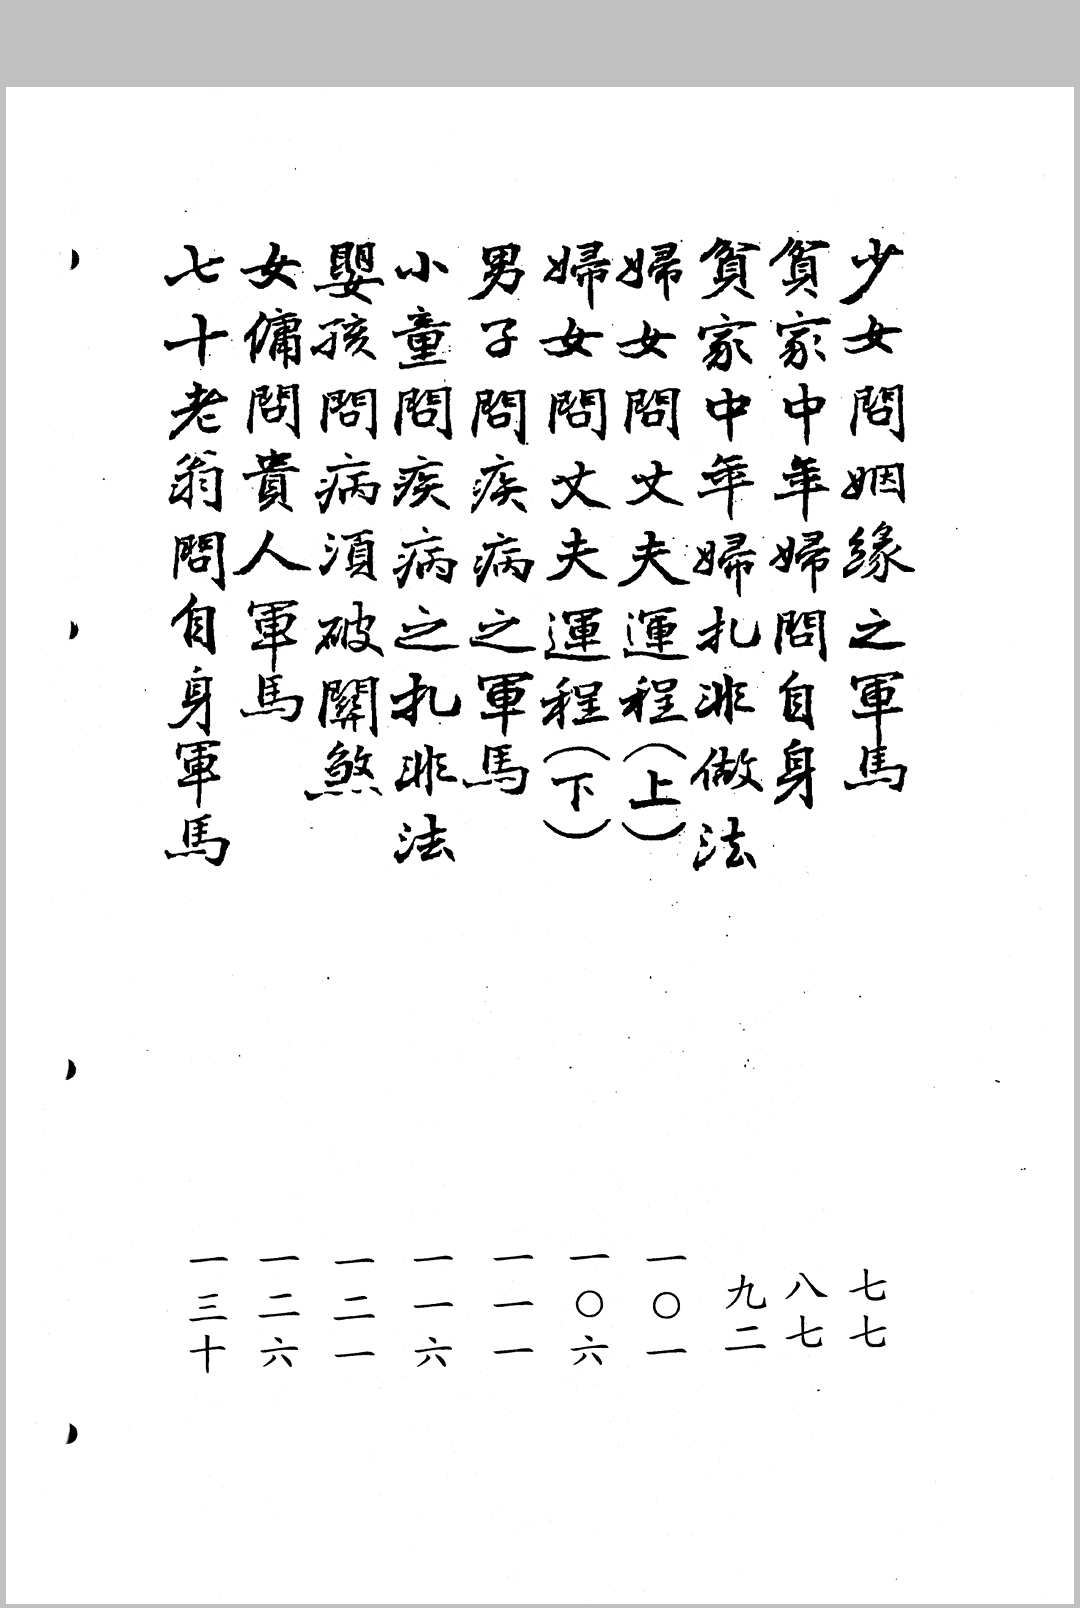 少女問姻緣之軍馬 七七
貧家中年婦問自身 八七
貧家中年婦扎非做法 九二
婦女問丈夫運程(上) 一〇一
婦女問丈夫運程(下) 一〇六
男子問疾病之軍馬 一一一
小童問疾病之扎非法 一一六
嬰孩問病須破關煞 一二一
女傭問貴人軍馬 一二六
七十老翁問自身軍馬 一三十